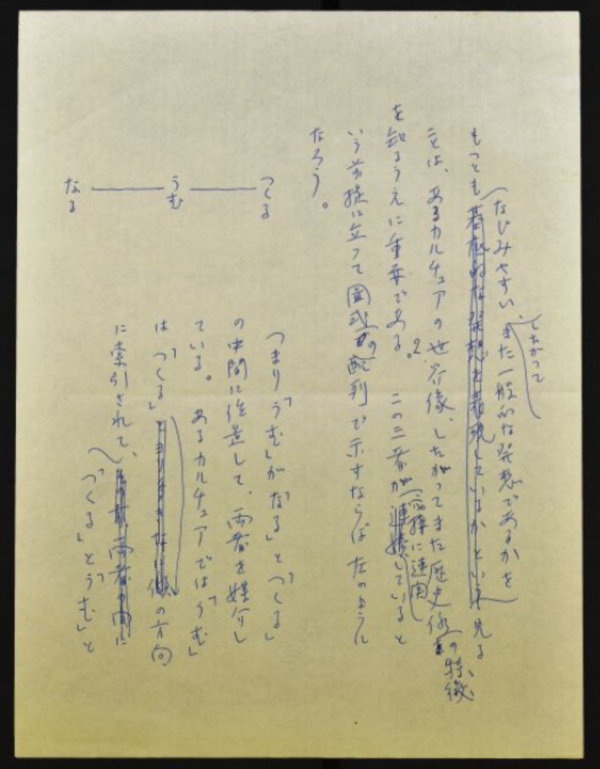 したがって
なじみやすい、また一般的な発想であるかを
もっとも基底的な発想を表現しているかという見る
ことは、あるカルチュアの世界像、したがってまた歴史像の特徴
を知るうえに重要である。この三者が連続していると
密接に連関
いう前提に立って図式的の配列で示すならば左のように
なろう。
つくる──うむ──なる
つまり「うむ」が「なる」と「つくる」
の中間に位置して、両者を媒介し
ている。あるカルチュアでは「うむ」
は「つくる」の方向
に牽引されて、
「つくる」と「うむ」と